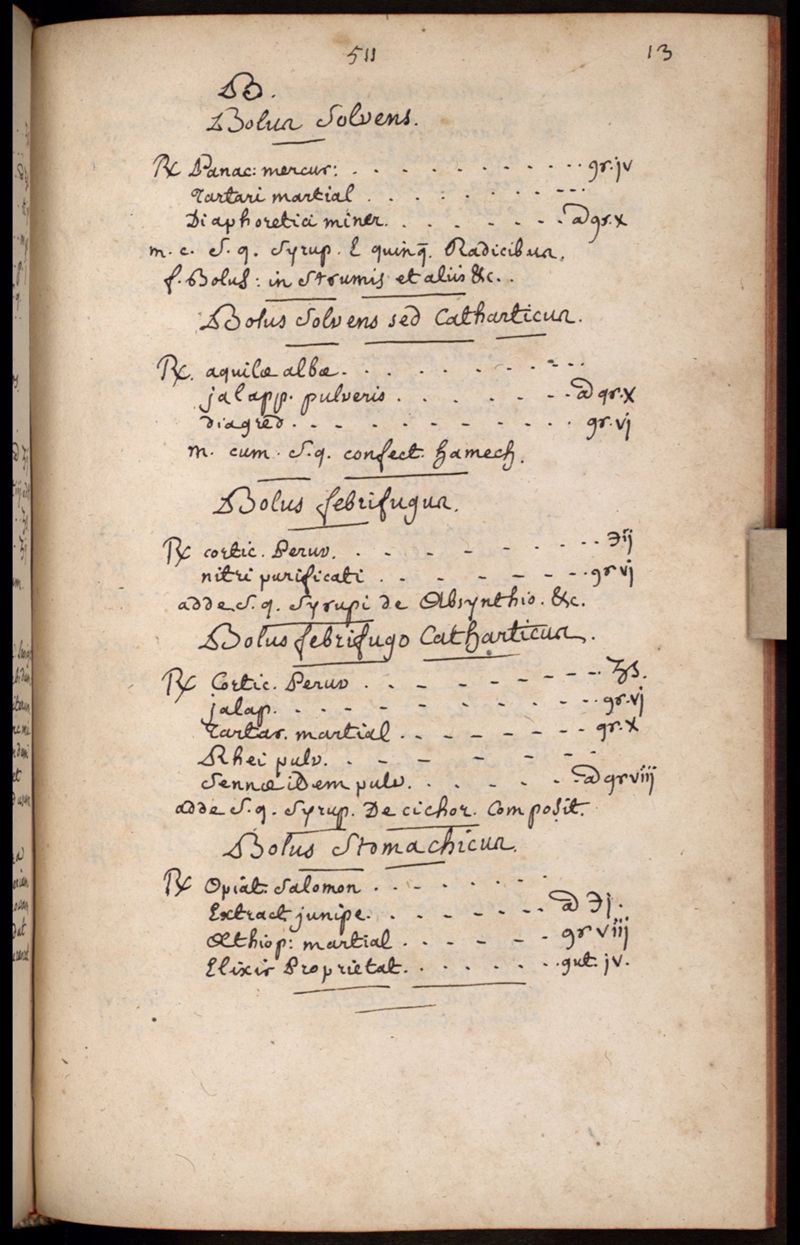 511 13
B.
Bolus Solvens.
℞ Panac: mercur: . . . . . . . . . . gr. jv
Tartari martial . . . . . . . . .
Diaphoretici miner. . . . . . . . ā gr. x
m. c. S. q. Syrup. E quinq̄. Radicibus,
f. Bolus: in Strumis et aliis &c. .
Bolus Solvens sed Catharticus.
℞. aquilæ albæ. . . . . . . . . . .
jalapp. pulveris . . . . . . . . ā gr. x
diagred . . . . . . . . . . . gr. vj
m. cum. S. q. confect. Hamech.
Bolus febrifugus.
℞ cortic. Peruv. . . . . . . . . . ℈ij
nitri purificati . . . . . . . . gr vj
adde S. q. Syrupi de Absynthio. &c.
Bolus febrifugo Catharticus.
℞ Cortic. Peruv . . . . . . . . . ʒß.
jalap. . . . . . . . . . . . gr. vj
Tartar. martial . . . . . . . . gr. x
Rhei pulv. . . . . . . . .
Sennæ idem pulv. . . . . . . ā gr viij
adde S. q. Syrup. De cichor. Composit.
Bolus Stomachicus.
℞ Opiat: Salomon . . . . . . .
Extract junipe. . . . . . . . ā ℈j.
Æthiop: martial . . . . . . gr viij
Elixir Proprietat. . . . . . . . gut. jv.